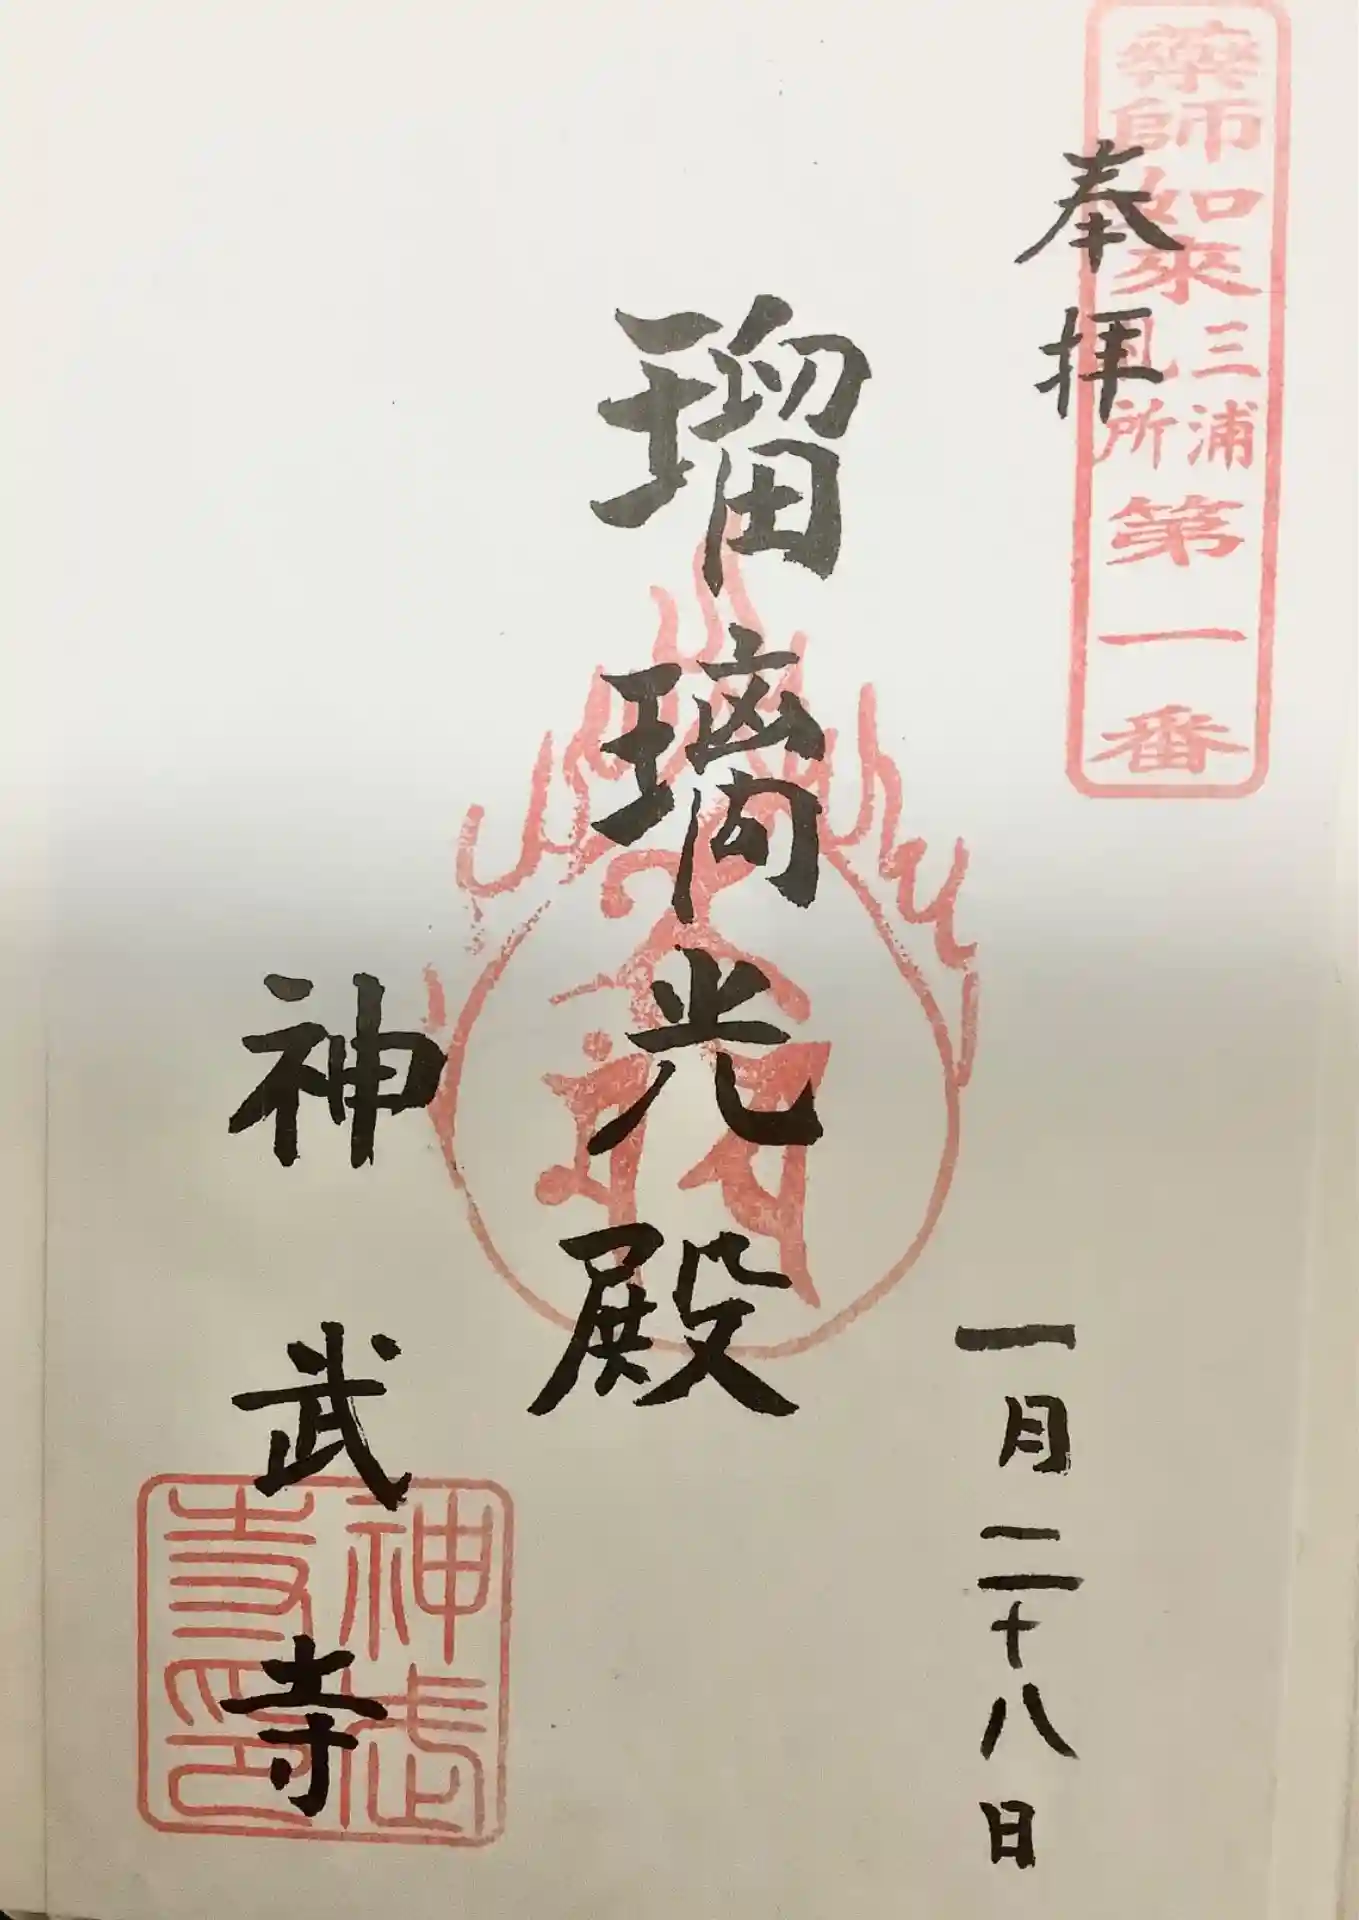 奉拝
薬師如来
三浦
札所
第一番
一月二十八日
瑠璃光殿
神武寺
神武
寺印